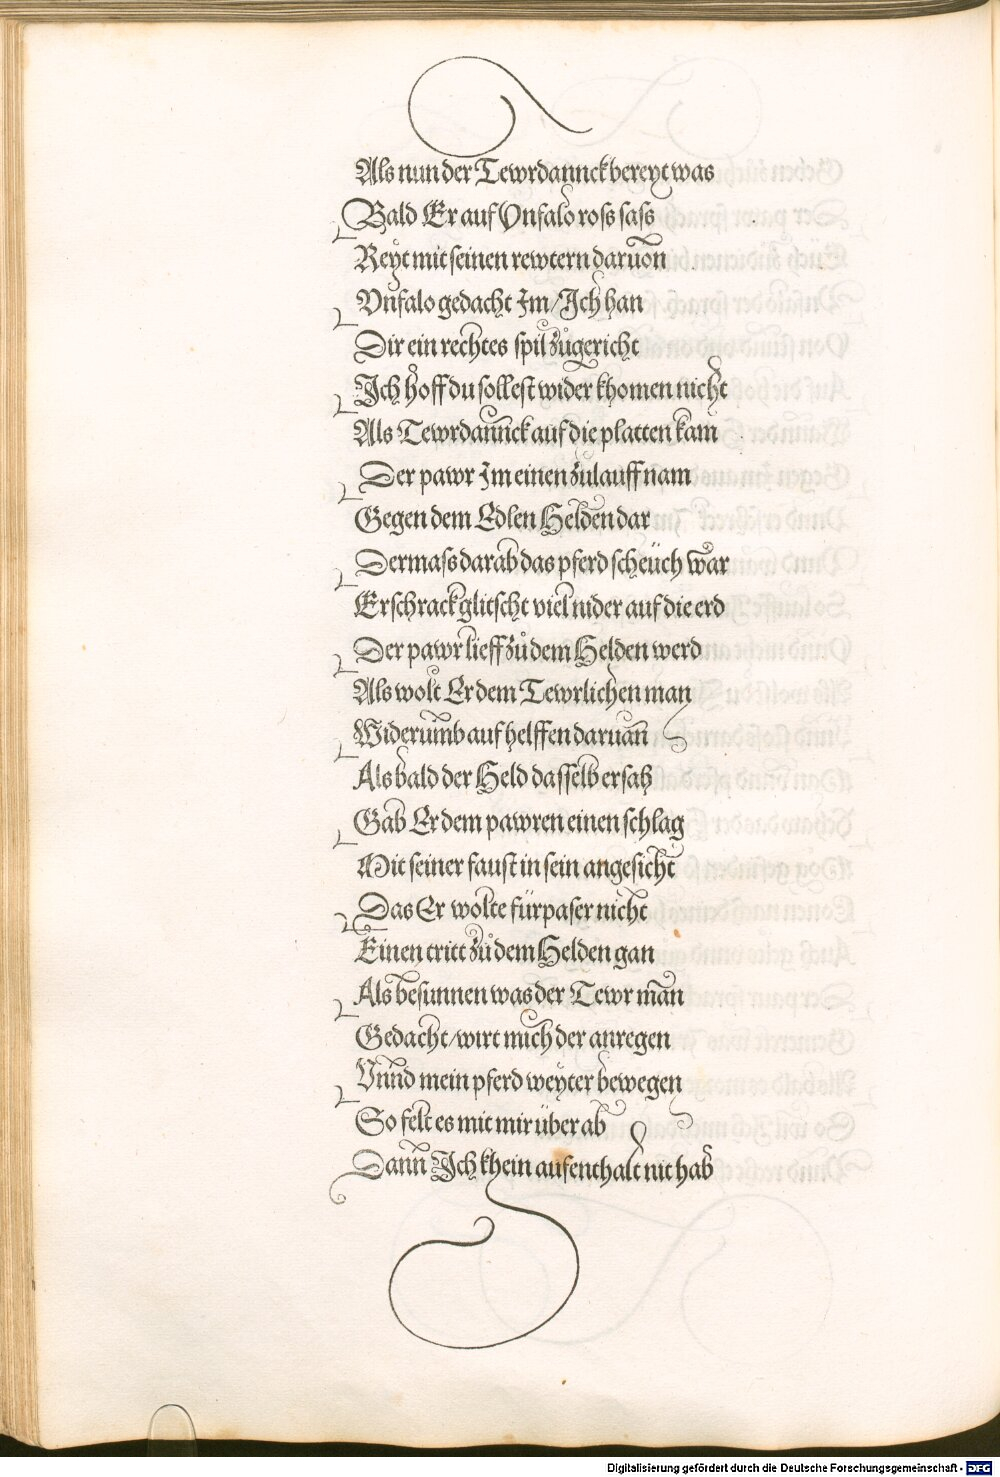 Als nun der Tewrdannck bereyt was
Bald Er auf Vnfalo ross sass
Reyt mit seinen rewtern daruon
Vnfalo gedacht Im/Ich han
Dir ein rechtes spil zůgericht
Ich hoff du sollest wider khomen nicht
Als Tewrdannck auf die platten kam
Der pawr Im einen zůlauff nam
Gegen dem Edlen Helden dar
Dermass darab das pferd scheüch war
Erschrack glitscht viel nider auf die erd
Der pawr lieff zů dem Helden werd
Als wolt Er dem Tewrlichen man
Widerumb auf helffen daruan
Als bald der Held dasselb ersah
Gab Er dem pawren einen schlag
Mit seiner faust in sein angesicht
Das Er wolte fürpaser nicht
Einen tritt zů dem Helden gan
Als besunnen was der Tewr man
Gedacht/wirt mich der anregen
Vnnd mein pferd weyter bewegen
So felt es mit mir über ab
Dann Ich khein aufenthalt nit hab
Digitalisierung gefördert durch die Deutsche Forschungsgemeinschaft - DFG